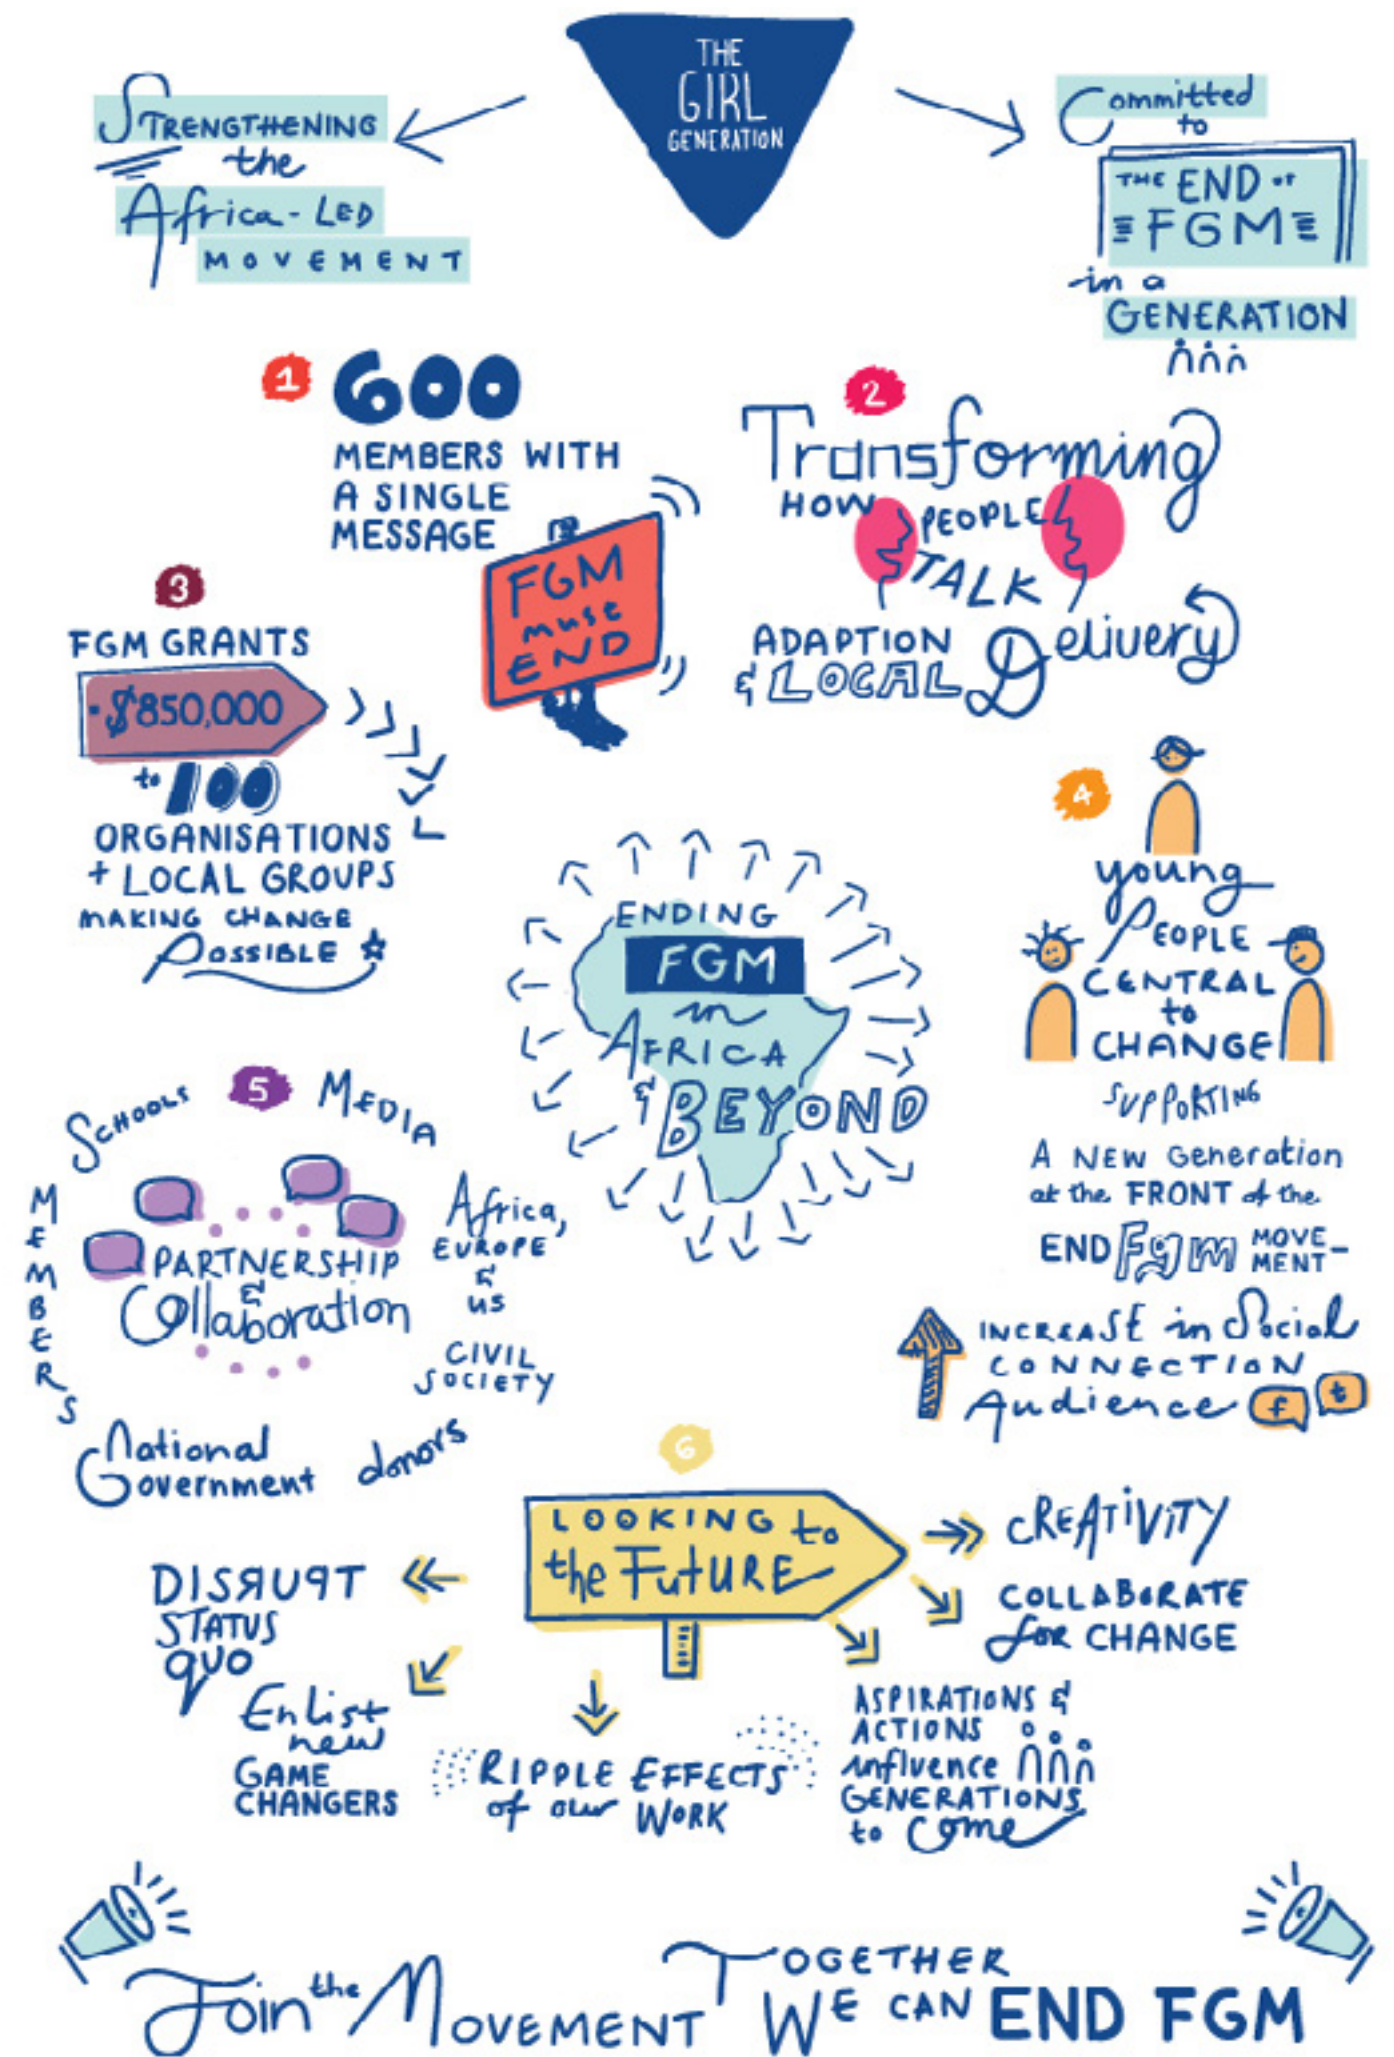 THE
GIRL
GENERATION
STRENGTHENING
the
Africa-LED
MOVEMENT
Committed
to
THE END OF
FGM
in a
GENERATION
1
600
MEMBERS WITH
A SINGLE
MESSAGE
FGM
must
END
2
Transforming
HOW PEOPLE
TALK
ADAPTION
& LOCAL Delivery
3
FGM GRANTS
$850,000
to 100
ORGANISATIONS
+ LOCAL GROUPS
MAKING CHANGE
POSSIBLE
4
young
PEOPLE
CENTRAL
to
CHANGE
SUPPORTING
A NEW Generation
at the FRONT of the
END Fgm MOVE-
MENT-
INCREASE in Social
CONNECTION
Audience f t
ENDING
FGM
in
AFRICA
& BEYOND
5
SCHOOLS
MEDIA
MEMBERS
PARTNERSHIP
&
Collaboration
Africa,
EUROPE
&
US
CIVIL
SOCIETY
National
Government
donors
6
LOOKING to
the FUTURE
CREATIVITY
COLLABORATE
for CHANGE
DISRUPT
STATUS
QUO
Enlist
new
GAME
CHANGERS
RIPPLE EFFECTS
of our WORK
ASPIRATIONS &
ACTIONS
influence
GENERATIONS
to come
Join the MOVEMENT
TOGETHER
WE CAN END FGM